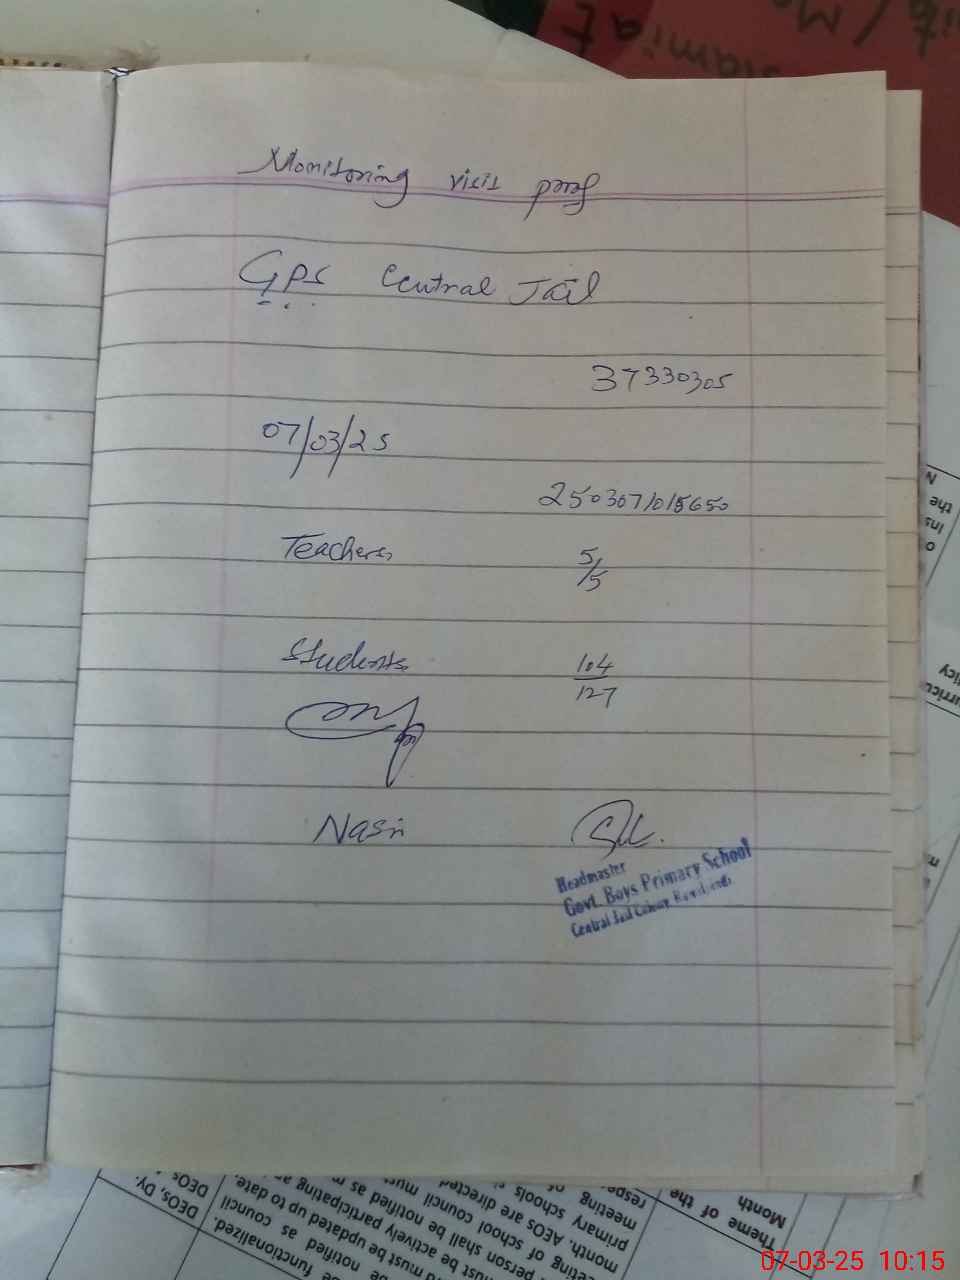 Monitoring visit proof
GPS Central Jail
37330305
07/03/25
2503071015650
Teachers 5/5
Students 104/127
Nasir
Headmaster
Govt. Boys Primary School
Central Jail Colony Rawalpindi
Theme of the
Month
DEOs, Dy.
DEOs
07-03-25 10:15